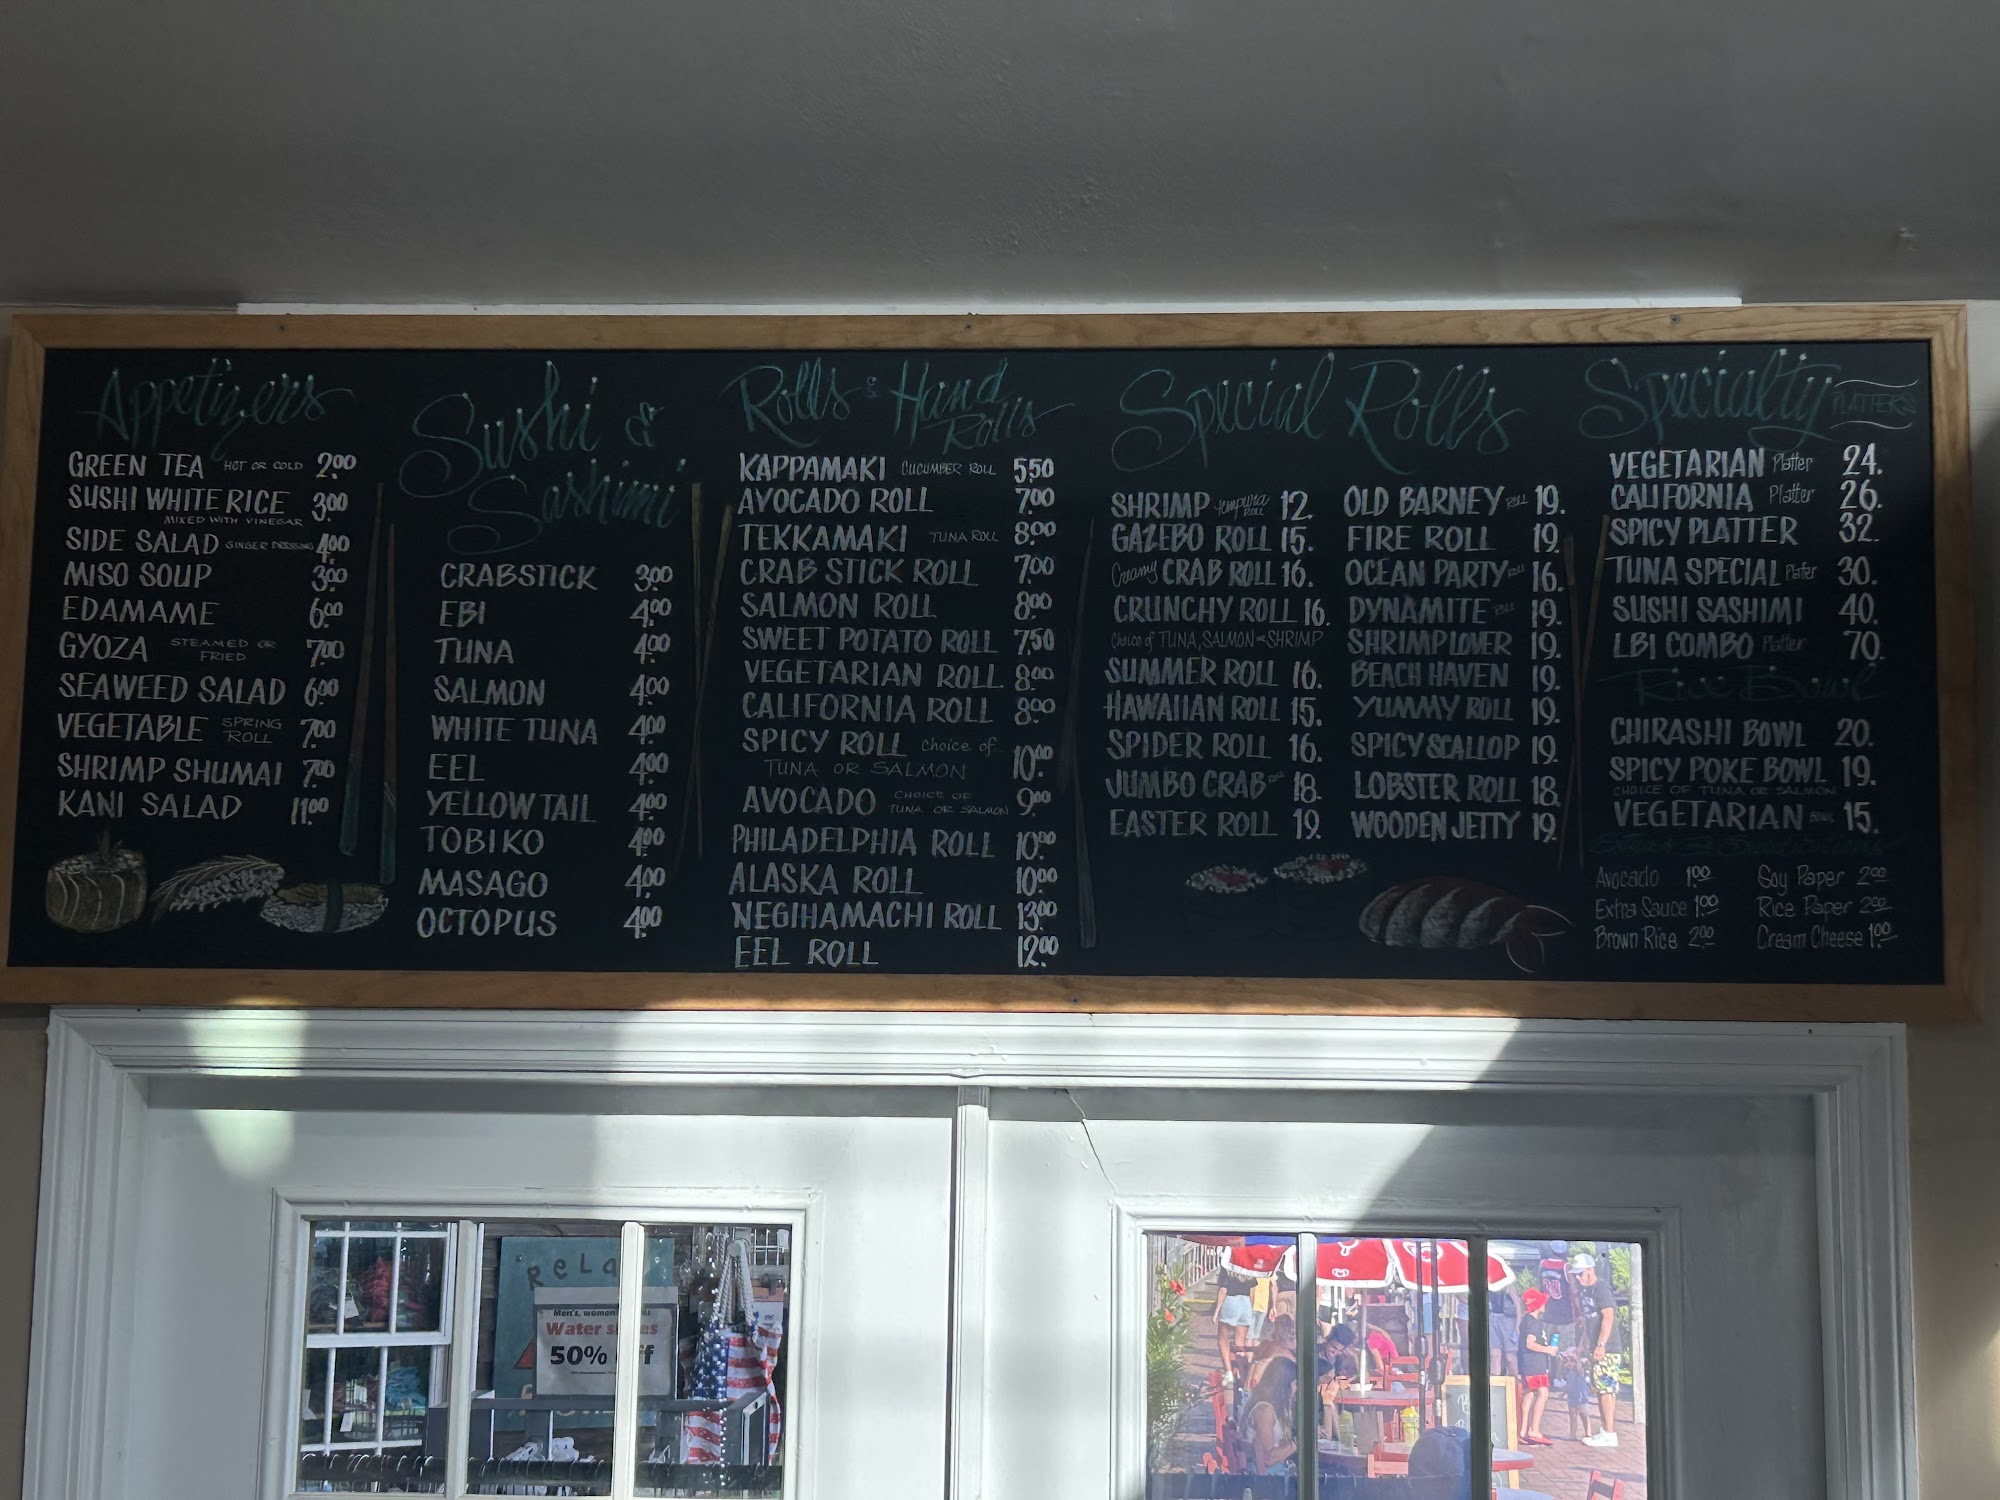 Appetizers
GREEN TEA HOT OR COLD 2.00
SUSHI WHITE RICE 3.00
MIXED WITH VINEGAR
SIDE SALAD GINGER DRESSING 4.00
MISO SOUP 3.00
EDAMAME 6.00
GYOZA STEAMED OR FRIED 7.00
SEAWEED SALAD 6.00
VEGETABLE SPRING ROLL 7.00
SHRIMP SHUMAI 7.00
KANI SALAD 11.00
Sushi & Sashimi
CRABSTICK 3.00
EBI 4.00
TUNA 4.00
SALMON 4.00
WHITE TUNA 4.00
EEL 4.00
YELLOW TAIL 4.00
TOBIKO 4.00
MASAGO 4.00
OCTOPUS 4.00
Rolls & Hand Rolls
KAPPAMAKI CUCUMBER ROLL 5.50
AVOCADO ROLL 7.00
TEKKAMAKI TUNA ROLL 8.00
CRAB STICK ROLL 7.00
SALMON ROLL 8.00
SWEET POTATO ROLL 7.50
VEGETARIAN ROLL 8.00
CALIFORNIA ROLL 8.00
SPICY ROLL Choice of
TUNA OR SALMON 10.00
AVOCADO CHOICE OF TUNA OR SALMON 9.00
PHILADELPHIA ROLL 10.00
ALASKA ROLL 10.00
NEGIHAMACHI ROLL 13.00
EEL ROLL 12.00
Special Rolls
SHRIMP tempura ROLL 12.
GAZEBO ROLL 15.
Creamy CRAB ROLL 16.
CRUNCHY ROLL 16.
Choice of TUNA, SALMON or SHRIMP
SUMMER ROLL 16.
HAWAIIAN ROLL 15.
SPIDER ROLL 16.
JUMBO CRAB ROLL 18.
EASTER ROLL 19.
OLD BARNEY ROLL 19.
FIRE ROLL 19.
OCEAN PARTY ROLL 16.
DYNAMITE ROLL 19.
SHRIMP LOVER 19.
BEACH HAVEN 19.
YUMMY ROLL 19.
SPICY SCALLOP 19.
LOBSTER ROLL 18.
WOODEN JETTY 19.
Specialty PLATTERS
VEGETARIAN Platter 24.
CALIFORNIA Platter 26.
SPICY PLATTER 32.
TUNA SPECIAL Platter 30.
SUSHI SASHIMI 40.
LBI COMBO Platter 70.
Rice Bowl
CHIRASHI BOWL 20.
SPICY POKE BOWL 19.
CHOICE OF TUNA OR SALMON
VEGETARIAN BOWL 15.
Avocado 1.00
Extra Sauce 1.00
Brown Rice 2.00
Soy Paper 2.00
Rice Paper 2.00
Cream Cheese 1.00
Men's, women
Water
50%